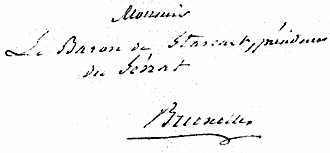 Monsieur
Le Baron de Stassart, président
du Sénat
Bruxelles